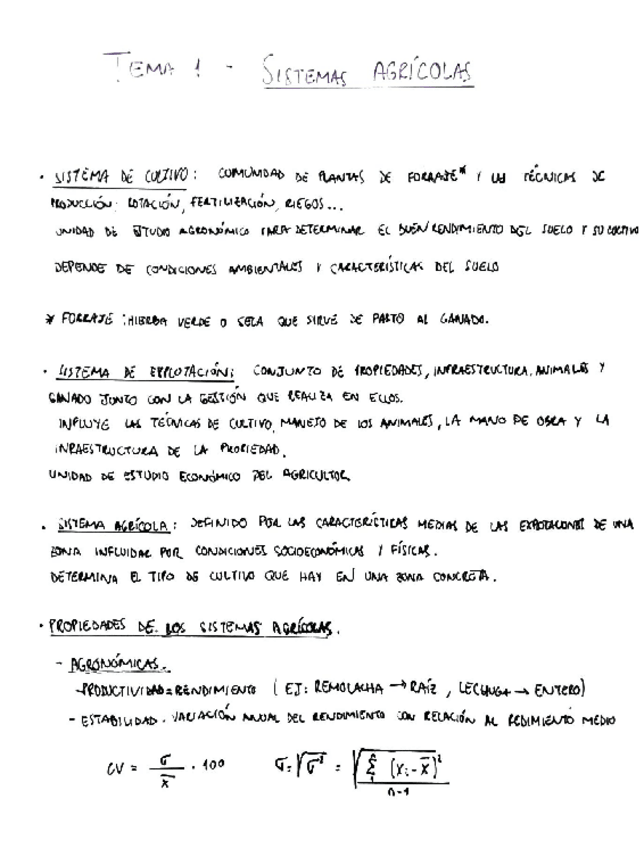 TEMA 1 - SISTEMAS AGRÍCOLAS
• SISTEMA DE CULTIVO: COMUNIDAD DE PLANTAS DE FORRAJE* Y LAS TÉCNICAS DE
PRODUCCIÓN: ROTACIÓN, FERTILIZACIÓN, RIEGOS...
UNIDAD DE ESTUDIO AGRONÓMICO PARA DETERMINAR EL BUEN RENDIMIENTO DEL SUELO Y SU CULTIVO
DEPENDE DE CONDICIONES AMBIENTALES Y CARACTERÍSTICAS DEL SUELO
* FORRAJE: HIERBA VERDE O SECA QUE SIRVE DE PASTO AL GANADO.
• SISTEMA DE EXPLOTACIÓN: CONJUNTO DE PROPIEDADES, INFRAESTRUCTURA, ANIMALES Y
GANADO JUNTO CON LA GESTIÓN QUE REALIZA EN ELLOS.
INFLUYE LAS TÉCNICAS DE CULTIVO, MANEJO DE LOS ANIMALES, LA MANO DE OBRA Y LA
INFRAESTRUCTURA DE LA PROPIEDAD.
UNIDAD DE ESTUDIO ECONÓMICO DEL AGRICULTOR
• SISTEMA AGRÍCOLA: DEFINIDO POR LAS CARACTERÍSTICAS MEDIAS DE LAS EXPLOTACIONES DE UNA
ZONA INFLUIDAS POR CONDICIONES SOCIOECONÓMICAS Y FÍSICAS.
DETERMINA EL TIPO DE CULTIVO QUE HAY EN UNA ZONA CONCRETA.
• PROPIEDADES DE LOS SISTEMAS AGRÍCOLAS.
- AGRONÓMICAS.
- PRODUCTIVIDAD = RENDIMIENTO (EJ: REMOLACHA → RAÍZ, LECHUGA → ENTERO)
- ESTABILIDAD. VARIACIÓN ANUAL DEL RENDIMIENTO CON RELACIÓN AL REDIMIENTO MEDIO
CV = σ / x̄ · 100 σ = √σ² = √Σ (xᵢ - x̄)² / n-1